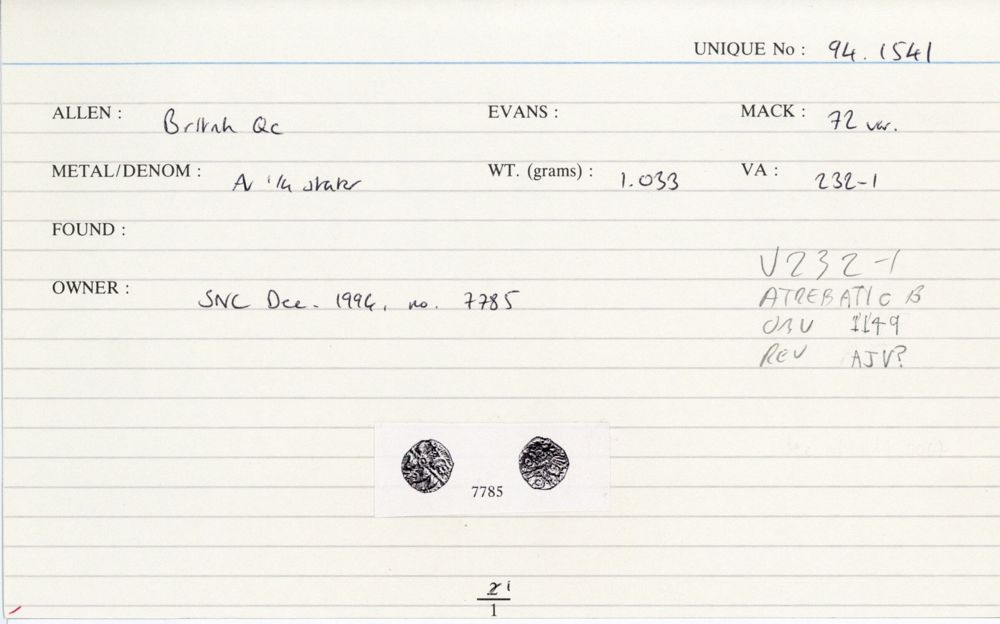 UNIQUE No : 94.1541
ALLEN : British Qc EVANS : MACK : 72 var.
METAL/DENOM : AV 1/4 stater WT. (grams) : 1.033 VA : 232-1
FOUND :
OWNER : SNC Dec. 1994, no. 7785
V232-1
ATREBATIC B
OBV 1149
REV AJV?
7785
2 1
1